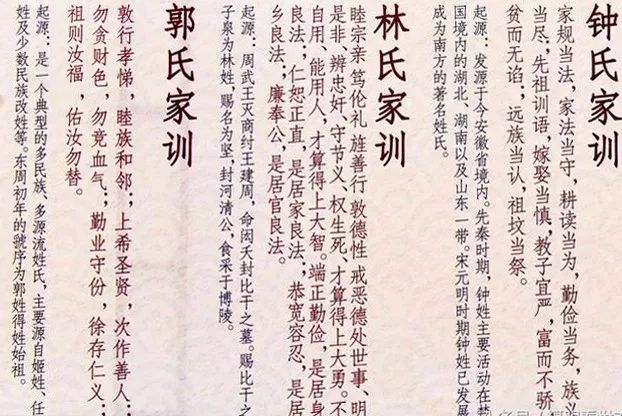 钟氏家训
家规当法，家法当守，耕读当为，勤俭当务，族义
当尽；先祖训语，嫁娶当慎，教子宜严，富而不骄
贫而无谄；远族当认，祖坟当祭。
起源：发源于今安徽省境内。先秦时期，钟姓主要活动在
国境内的湖北、湖南以及山东一带。宋元明时期钟姓已发展
成为南方的著名姓氏。
林氏家训
睦宗亲 笃伦礼 旌善行 敦德性 戒恶德处世事、明
是非、辨忠奸、守节义、权生死、才算得上大勇。不
自用、能用人，才算得上大智。端正勤俭，是居身
良法；仁恕正直，是居家良法；恭宽容忍，是居
乡良法；廉奉公，是居官良法。
起源：周武王灭商纣王建周，命闳夭封比干之墓。赐比干之
子泉为林姓，赐名为坚，封河清公，食采于博陵。
郭氏家训
敦行孝悌，睦族和邻；上希圣贤，次作善人；
勿贪财色，勿竞血气；勤业守份，徐存仁义；
祖则汝福，佑汝勿替。
起源：是一个典型的多民族、多源流姓氏，主要源自姬姓、任
姓及少数民族改姓等。东周初年的虢序为郭姓得姓始祖。